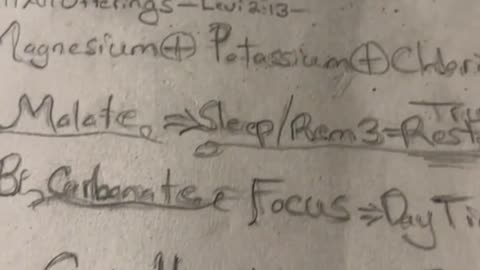 Offerings-Levi 2:13-
Magnesium ⊕ Potassium ⊕ Chlori
Malate. ⇒ Sleep/Rem 3 = Rest
Carbonate = Focus ⇒ Day Ti